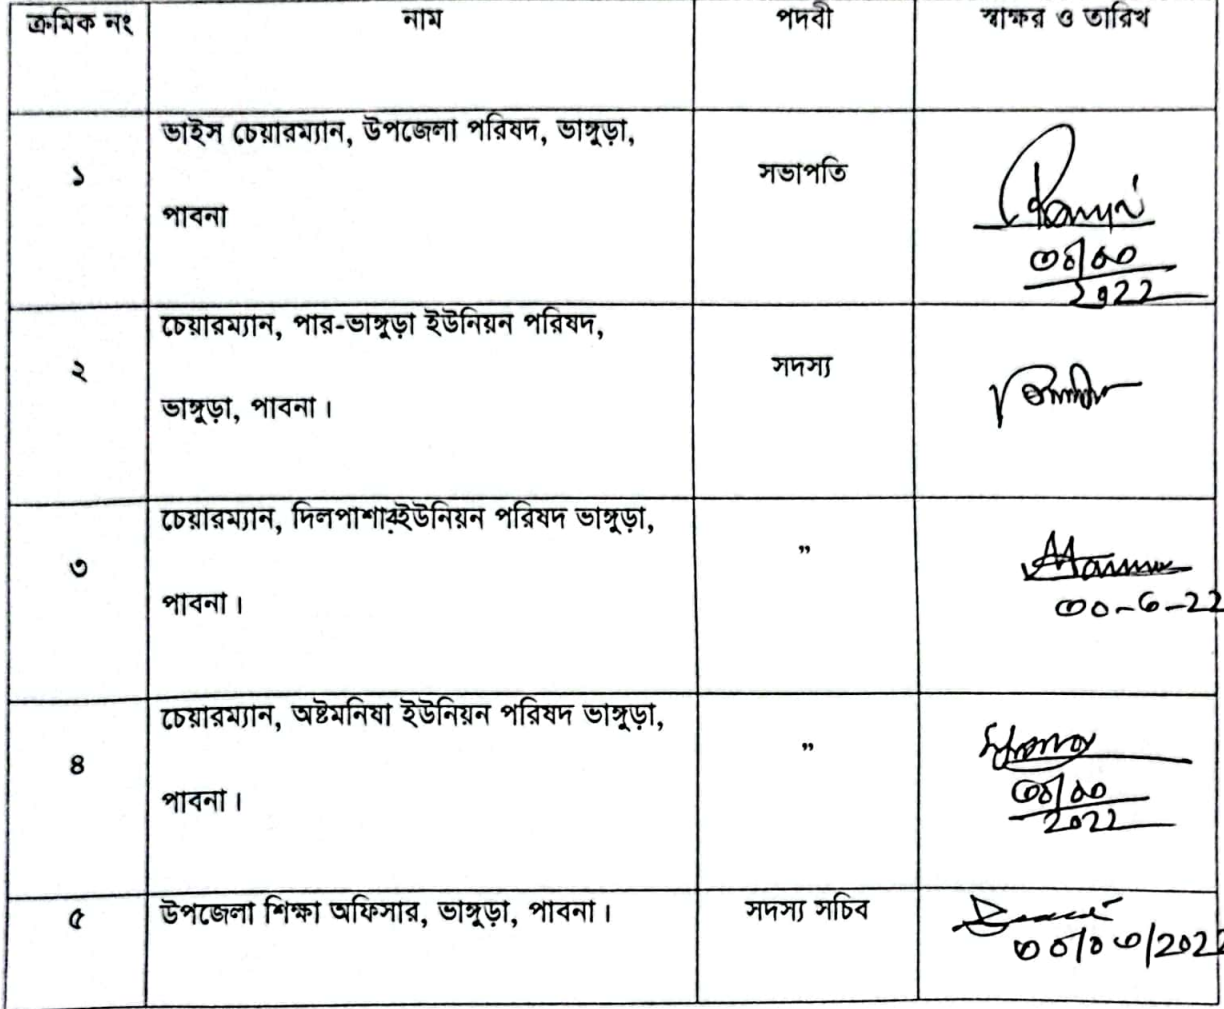 ক্রমিক নং নাম পদবী স্বাক্ষর ও তারিখ
ভাইস চেয়ারম্যান, উপজেলা পরিষদ, ভাঙ্গুড়া,
১ সভাপতি
পাবনা
2022
চেয়ারম্যান, পার-ভাঙ্গুড়া ইউনিয়ন পরিষদ,
২ সদস্য
ভাঙ্গুড়া, পাবনা।
চেয়ারম্যান, দিলপাশারইউনিয়ন পরিষদ ভাঙ্গুড়া,
৩ ”
পাবনা। ৩০-৬-22
চেয়ারম্যান, অষ্টমনিষা ইউনিয়ন পরিষদ ভাঙ্গুড়া,
৪ ”
পাবনা।
2022
৫ উপজেলা শিক্ষা অফিসার, ভাঙ্গুড়া, পাবনা। সদস্য সচিব